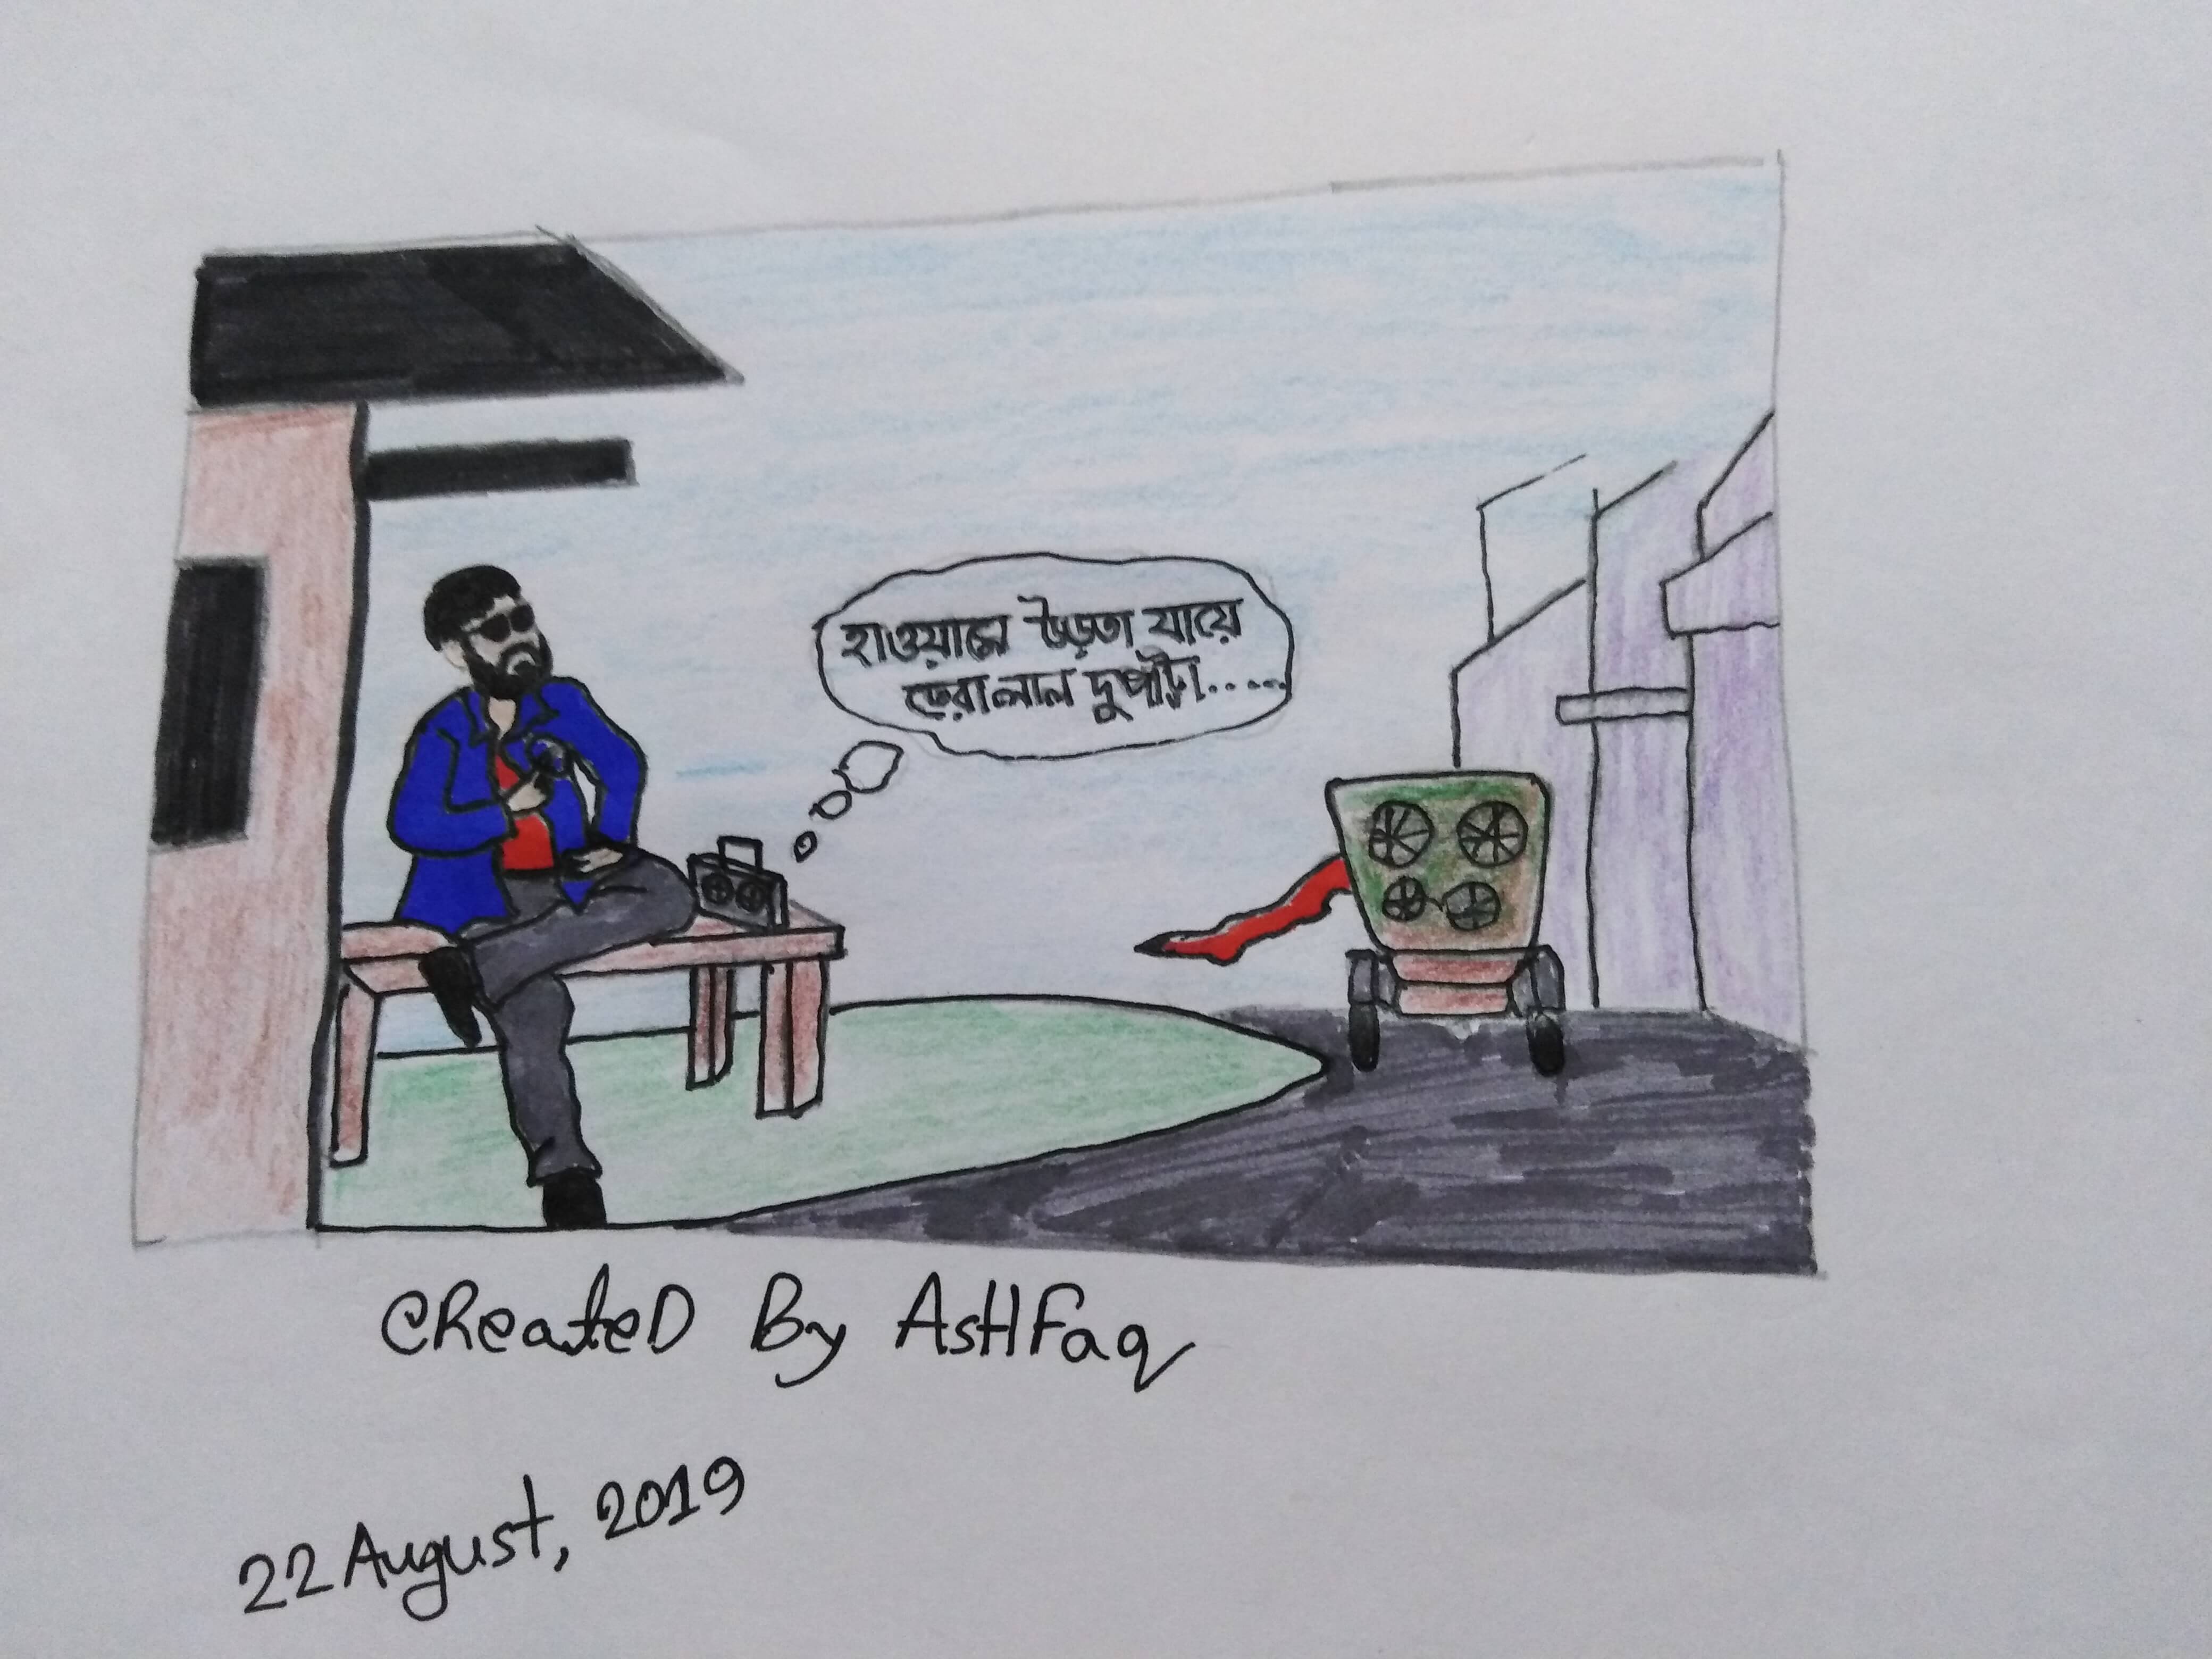 হাওয়ামে উড়তা যায়ে
তেরা লাল দুপাট্টা.....
CReateD By AsHFaq
22 August, 2019